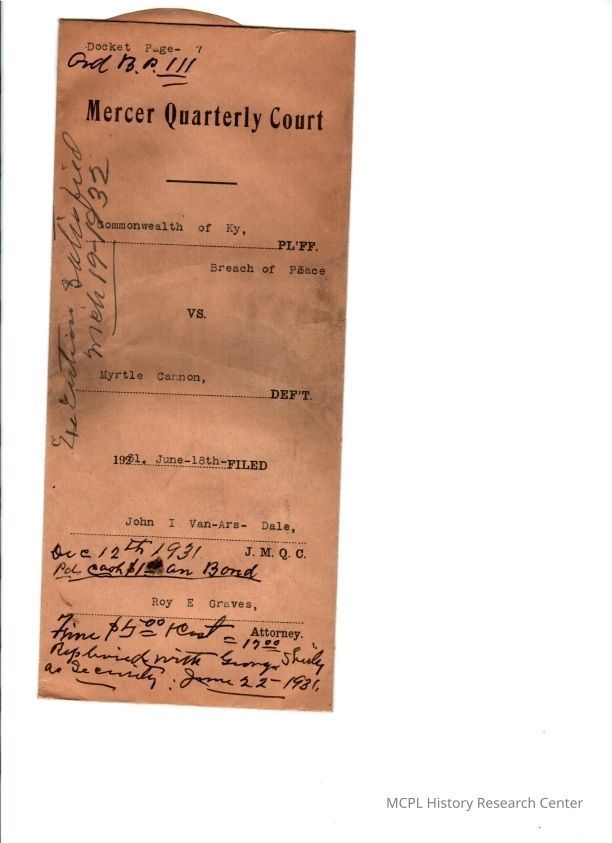 Docket Page- 7
Ord B. P. 111
Mercer Quarterly Court
Execution Satisfied
Mch 19-1932
Commonwealth of Ky,
PL'FF.
Breach of Peace
VS.
Myrtle Cannon,
DEF'T.
1931. June-18th-FILED
John I Van-Ars- Dale,
Dec 12th 1931 J. M. Q. C.
Pd cash $1 on Bond
Roy E Graves,
Attorney.
Fine $5.00 & Cost = 17.00
Replevied with George Shirley
as Security. June 22-1931.
MCPL History Research Center